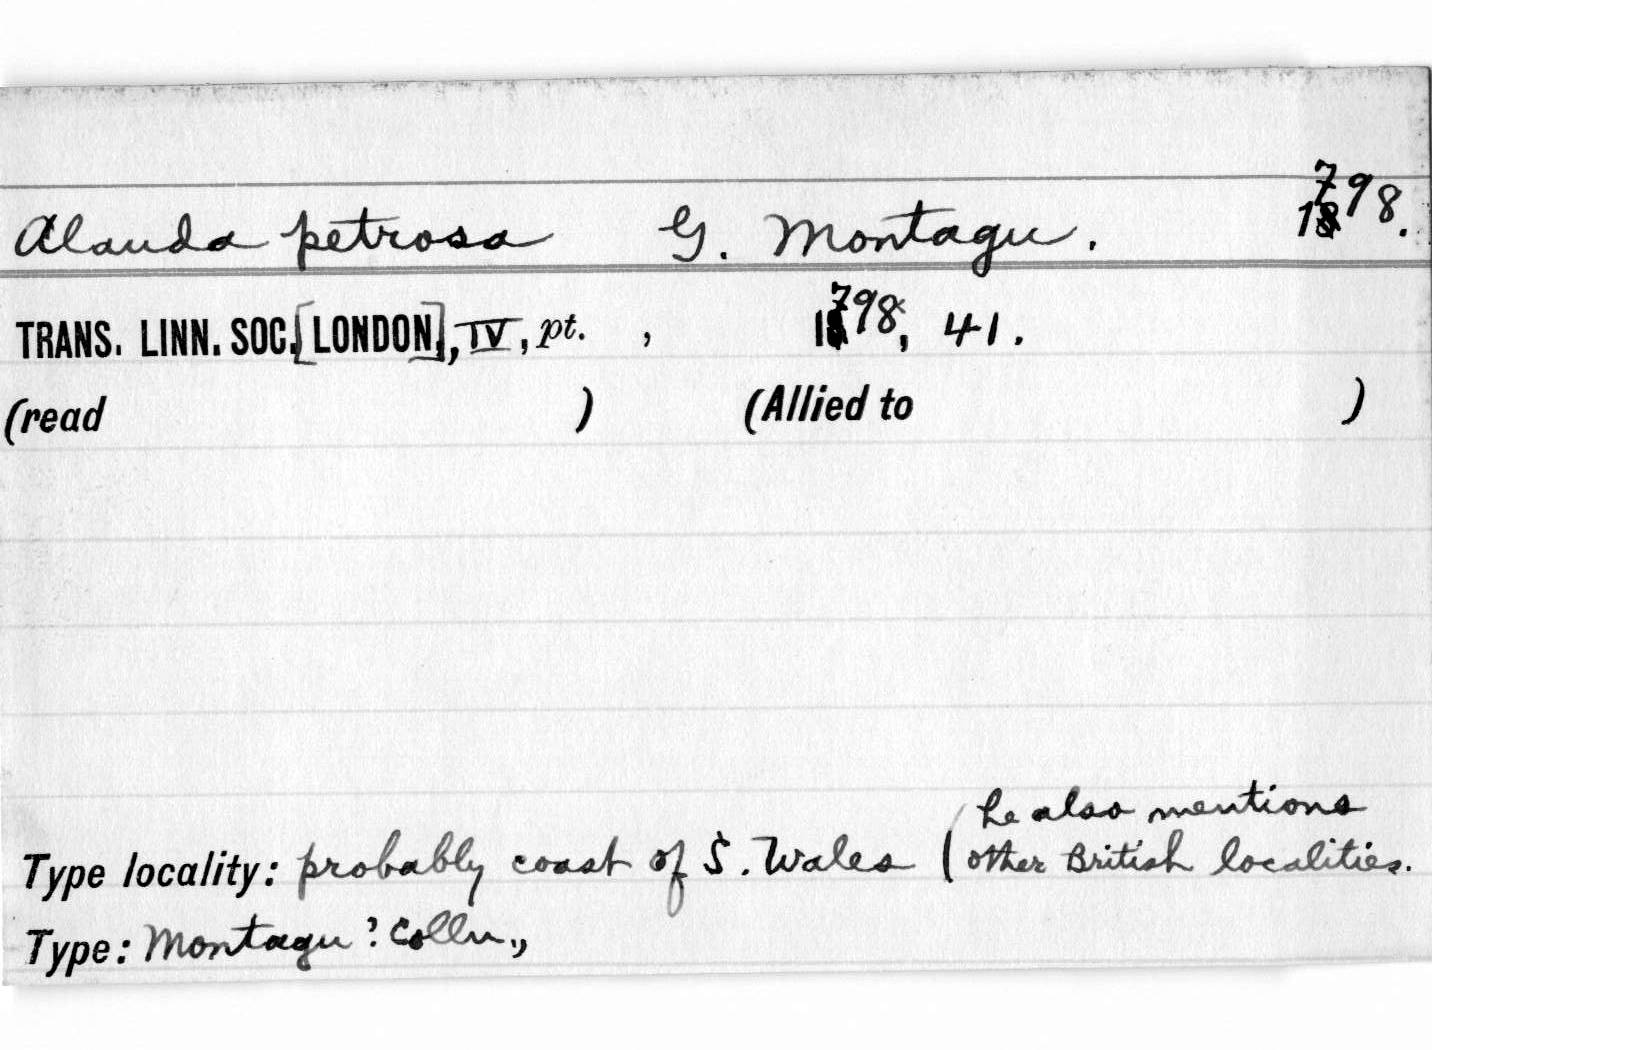 Alauda petrosa G. Montagu. 1798.
TRANS. LINN. SOC. [LONDON], IV, pt. , 1798, 41.
(read ) (Allied to )
he also mentions
Type locality: probably coast of S. Wales ( other British localities.
Type: Montagu? Colln.,